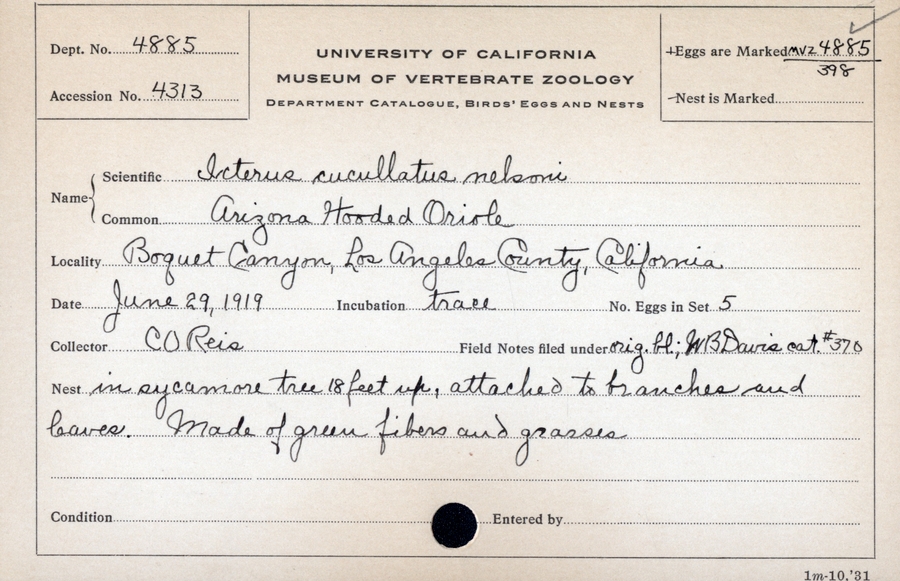 Dept. No. 4885
Accession No. 4313
UNIVERSITY OF CALIFORNIA
MUSEUM OF VERTEBRATE ZOOLOGY
DEPARTMENT CATALOGUE, BIRDS' EGGS AND NESTS
+Eggs are Marked MVZ 4885
398
-Nest is Marked
Name
Scientific Icterus cucullatus nelsoni
Common Arizona Hooded Oriole
Locality Boquet Canyon, Los Angeles County, California
Date June 29, 1919 Incubation trace No. Eggs in Set 5
Collector C O Reis Field Notes filed under orig. bl; WB Davis cat. #370
Nest in sycamore tree 18 feet up, attached to branches and
leaves. Made of green fibers and grasses
Condition Entered by
1m-10,'31